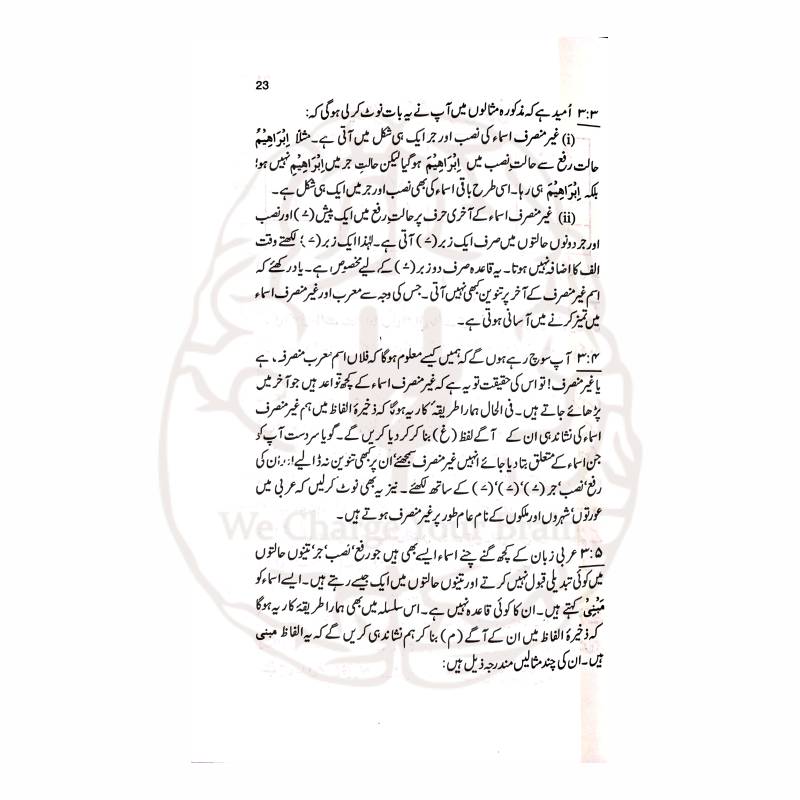 23
۳:۳ اُمید ہے کہ مذکورہ مثالوں میں آپ نے یہ بات نوٹ کر لی ہوگی کہ:
(i) غیر منصرف اسماء کی نصب اور جر ایک ہی شکل میں آتی ہے۔ مثلاً اِبْرَاهِیْمُ
حالت رفع سے حالتِ نصب میں اِبْرَاهِیْمَ ہو گیا لیکن حالتِ جر میں اِبْرَاهِیْمِ نہیں ہوا
بلکہ اِبْرَاهِیْمَ ہی رہا۔ اسی طرح باقی اسماء کی بھی نصب اور جر میں ایک ہی شکل ہے۔
(ii) غیر منصرف اسماء کے آخری حرف پر حالت رفع میں ایک پیش (ُ) اور نصب
اور جر دونوں حالتوں میں صرف ایک زبر (َ) آتی ہے۔ لہٰذا ایک زبر (َ) لکھتے وقت
الف کا اضافہ نہیں ہوتا۔ یہ قاعدہ صرف دو زبر (ً) کے لیے مخصوص ہے۔ یاد رکھئے کہ
اسم غیر منصرف کے آخر پر تنوین کبھی نہیں آتی۔ جس کی وجہ سے معرب اور غیر منصرف اسماء
میں تمیز کرنے میں آسانی ہوتی ہے۔
۳:۴ آپ سوچ رہے ہوں گے کہ ہمیں کیسے معلوم ہوگا کہ فلاں اسم معرب منصرف ہے
یا غیر منصرف! تو اس کی حقیقت تو یہ ہے کہ غیر منصرف اسماء کے کچھ قواعد ہیں جو آخر میں
پڑھائے جاتے ہیں۔ فی الحال ہمارا طریقۂ کار یہ ہوگا کہ ذخیرۂ الفاظ میں ہم غیر منصرف
اسماء کی نشاندہی ان کے آگے لفظ (غ) بنا کر کر دیا کریں گے۔ گویا سردست آپ کو
جن اسماء کے متعلق بتا دیا جائے انہیں غیر منصرف سمجھئے، ان پر کبھی تنوین نہ ڈالیے! اور ان کی
رفع، نصب، جر (ُ)، (َ)، (َ) کے ساتھ لکھئے۔ نیز یہ بھی نوٹ کر لیں کہ عربی میں
عورتوں، شہروں اور ملکوں کے نام عام طور پر غیر منصرف ہوتے ہیں۔
۳:۵ عربی زبان کے کچھ گنے چنے اسماء ایسے بھی ہیں جو رفع، نصب، جر، تینوں حالتوں
میں کوئی تبدیلی قبول نہیں کرتے اور تینوں حالتوں میں ایک جیسے رہتے ہیں۔ ایسے اسماء کو
مَبْنِیٌّ کہتے ہیں۔ ان کا کوئی قاعدہ نہیں ہے۔ اس سلسلہ میں بھی ہمارا طریقۂ کار یہ ہوگا
کہ ذخیرۂ الفاظ میں ان کے آگے (م) بنا کر ہم نشاندہی کریں گے کہ یہ الفاظ مبنی
ہیں۔ ان کی چند مثالیں مندرجہ ذیل ہیں:
We Charge Your Brain